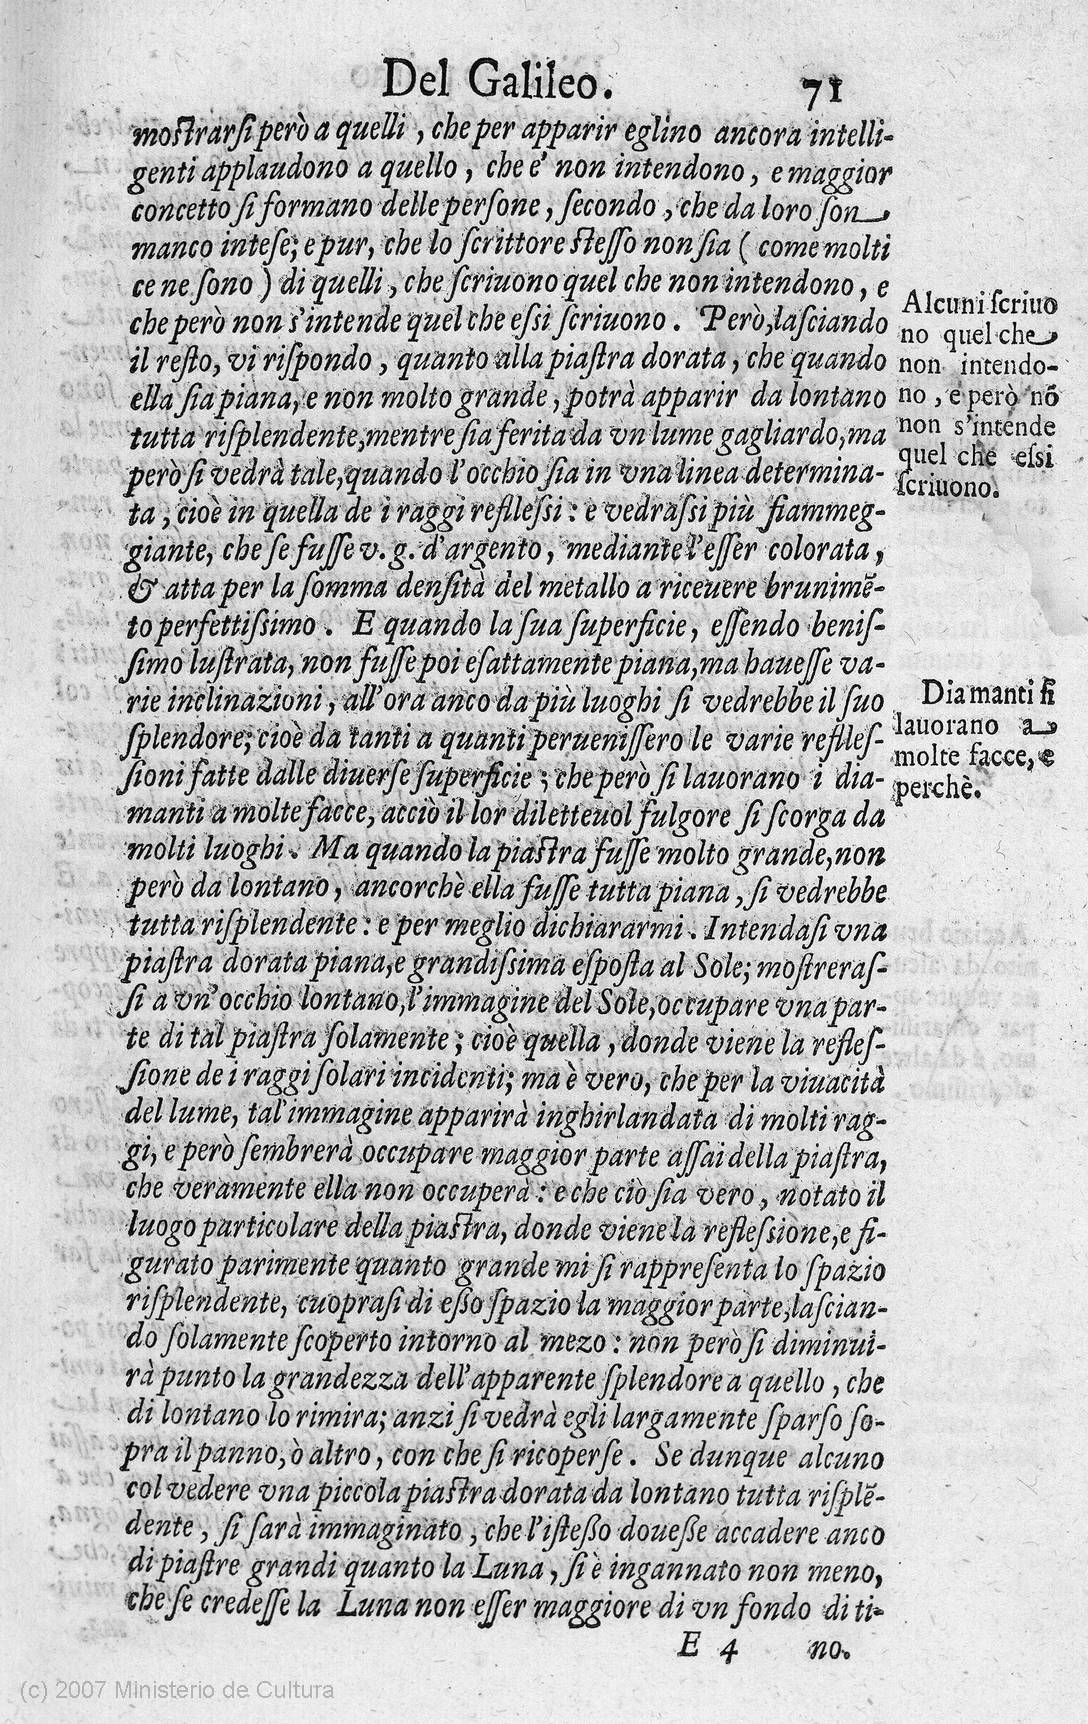 Del Galileo. 71
mostrarsi però a quelli , che per apparir eglino ancora intelli-
genti applaudono a quello , che e' non intendono , e maggior
concetto si formano delle persone , secondo , che da loro son
manco intese; e pur, che lo scrittore stesso non sia ( come molti
ce ne sono ) di quelli , che scriuono quel che non intendono , e
che però non s'intende quel che essi scriuono . Però, lasciando
il resto, vi rispondo , quanto alla piastra dorata , che quando
ella sia piana, e non molto grande , potrà apparir da lontano
tutta risplendente, mentre sia ferita da vn lume gagliardo, ma
però si vedrà tale, quando l'occhio sia in vna linea determina-
ta , cioè in quella de i raggi reflessi : e vedrassi più fiammeg-
giante, che se fusse v. g. d'argento , mediante l'esser colorata ,
& atta per la somma densità del metallo a riceuere brunimẽ-
to perfettissimo . E quando la sua superficie, essendo benis-
simo lustrata, non fusse poi esattamente piana, ma hauesse va-
rie inclinazioni , all'ora anco da più luoghi si vedrebbe il suo
splendore; cioè da tanti a quanti peruenissero le varie refles-
sioni fatte dalle diuerse superficie ; che però si lauorano i dia-
manti a molte facce, acciò il lor diletteuol fulgore si scorga da
molti luoghi . Ma quando la piastra fusse molto grande, non
però da lontano , ancorchè ella fusse tutta piana , si vedrebbe
tutta risplendente : e per meglio dichiararmi . Intendasi vna
piastra dorata piana, e grandissima esposta al Sole; mostreras-
si a vn'occhio lontano, l'immagine del Sole, occupare vna par-
te di tal piastra solamente ; cioè quella , donde viene la refles-
sione de i raggi solari incidenti; ma è vero, che per la viuacità
del lume, tal'immagine apparirà inghirlandata di molti rag-
gi, e però sembrerà occupare maggior parte assai della piastra,
che veramente ella non occuperà : e che ciò sia vero , notato il
luogo particolare della piastra, donde viene la reflessione, e fi-
gurato parimente quanto grande mi si rappresenta lo spazio
risplendente, cuoprasi di esso spazio la maggior parte, lascian-
do solamente scoperto intorno al mezo : non però si diminui-
rà punto la grandezza dell'apparente splendore a quello , che
di lontano lo rimira; anzi si vedrà egli largamente sparso so-
pra il panno, ò altro , con che si ricoperse . Se dunque alcuno
col vedere vna piccola piastra dorata da lontano tutta risplẽ-
dente , si sarà immaginato , che l'istesso douesse accadere anco
di piastre grandi quanto la Luna , si è ingannato non meno,
che se credesse la Luna non esser maggiore di vn fondo di ti-
E 4 no.
Alcuni scriuo
no quel che
non intendo-
no , e però nō
non s'intende
quel che essi
scriuono.
Diamanti si
lauorano a
molte facce, e
perchè.
(c) 2007 Ministerio de Cultura